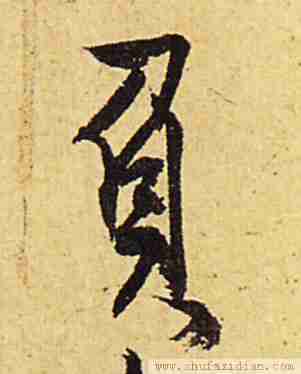 負
www.shufazidian.com